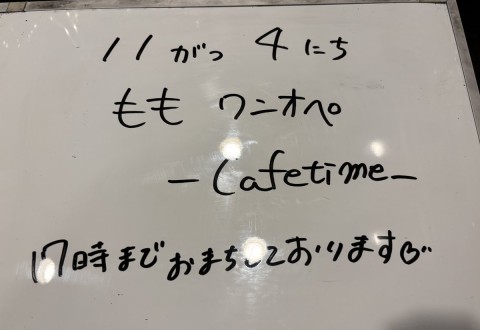 11がつ 4にち
もも ワンオペ
-Cafetime-
17時までおまちしております♡